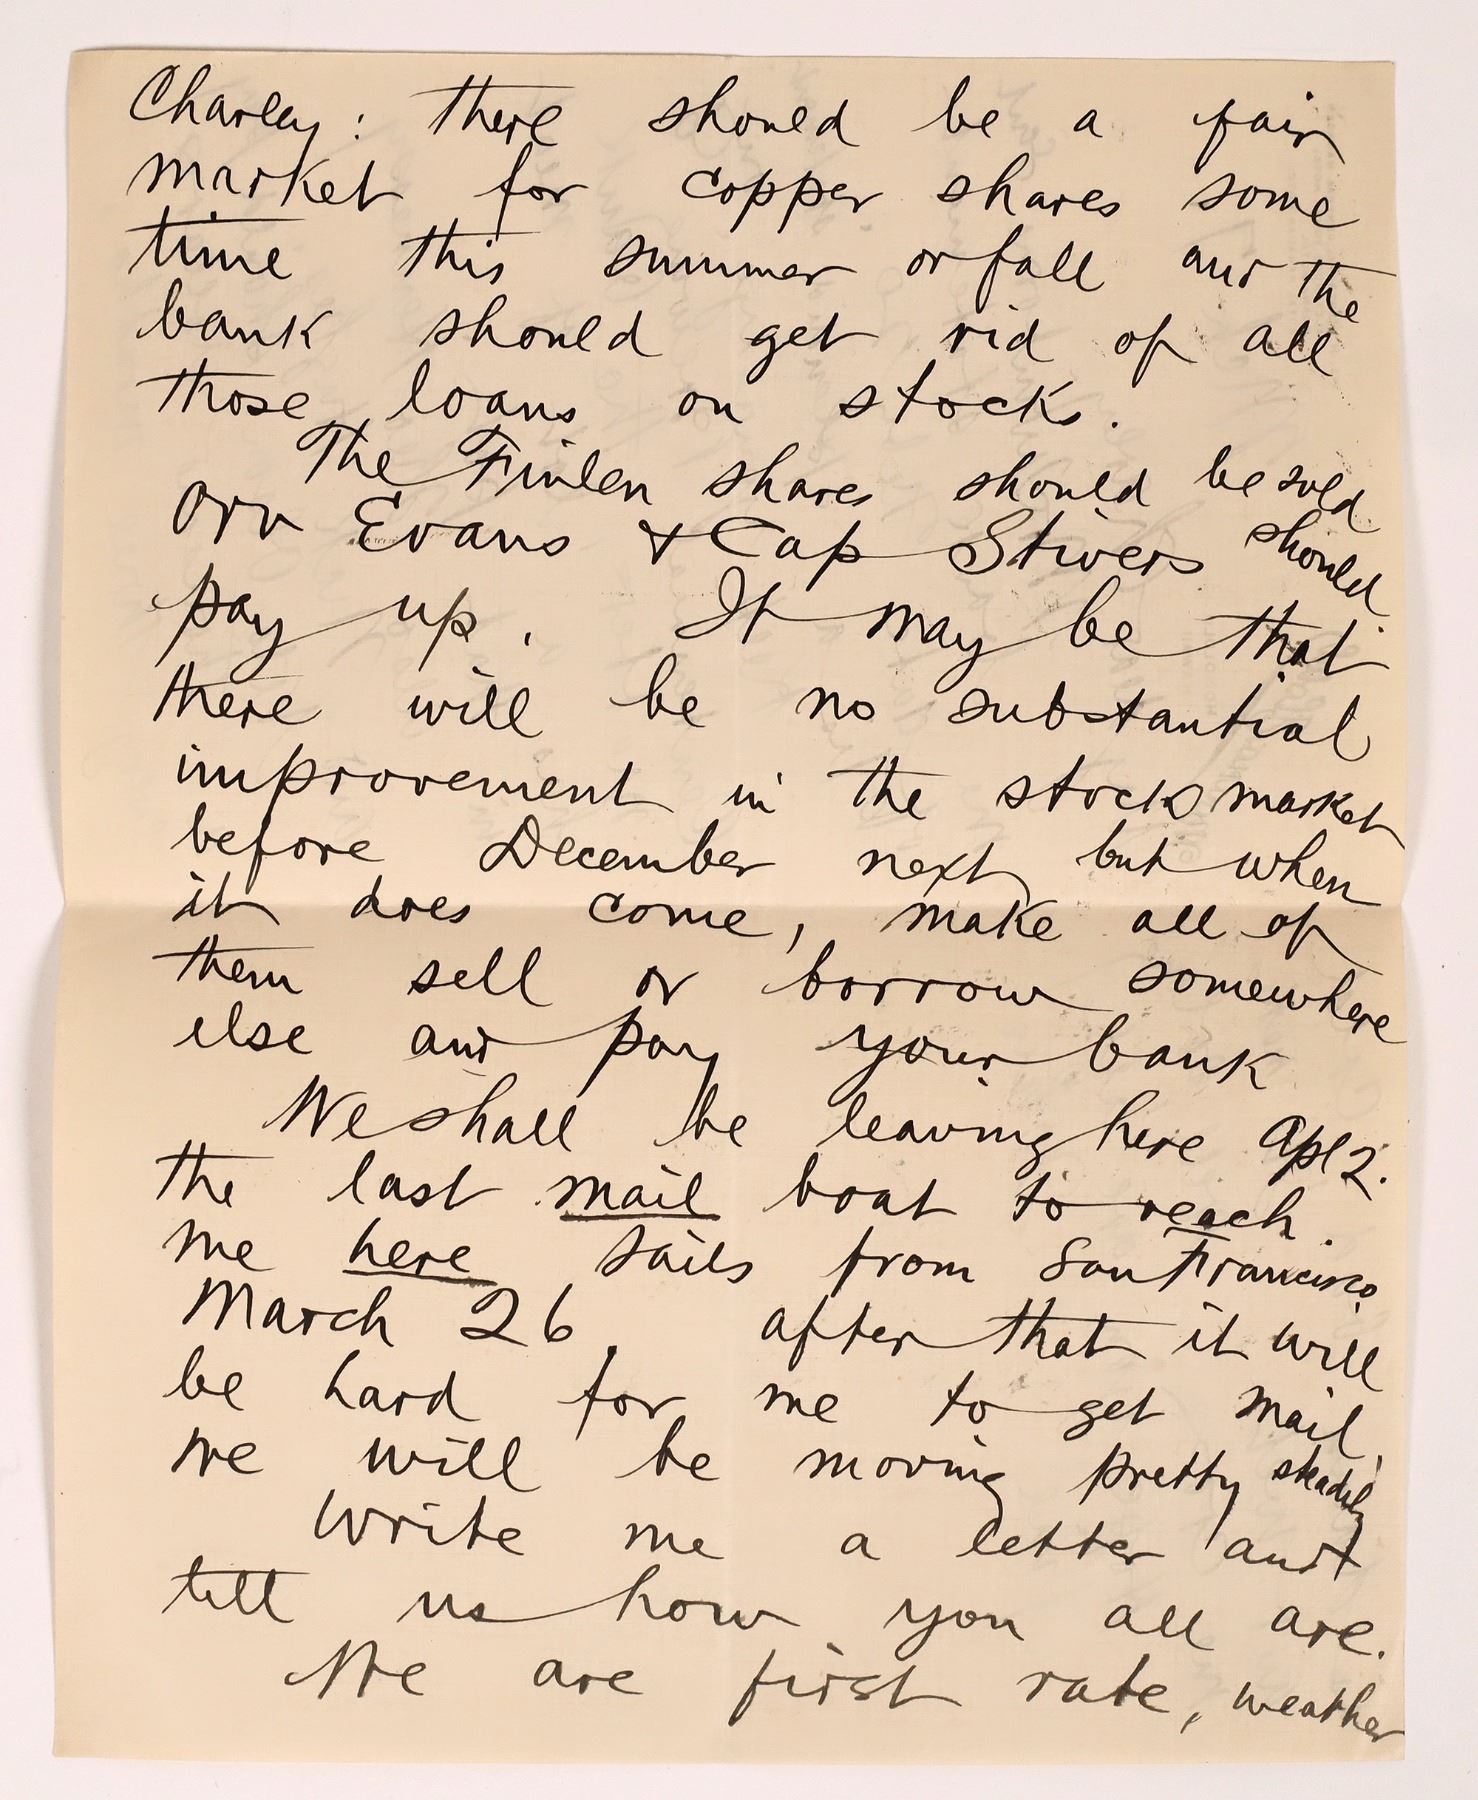 Charley: there should be a fair
market for copper shares some
time this summer or fall and the
bank should get rid of all
those loans on stocks.
The Finlen shares should be sold
Orv Evans & Cap Stivers should
pay up. It may be that
there will be no substantial
improvement in the stock market
before December next but when
it does come, make all of
them sell or borrow somewhere
else and pay your bank
We shall be leaving here Apl 2.
the last mail boat to reach
me here sails from San Francisco
March 26, after that it will
be hard for me to get mail,
we will be moving pretty steadily
Write me a letter and
tell us how you all are.
We are first rate, weather